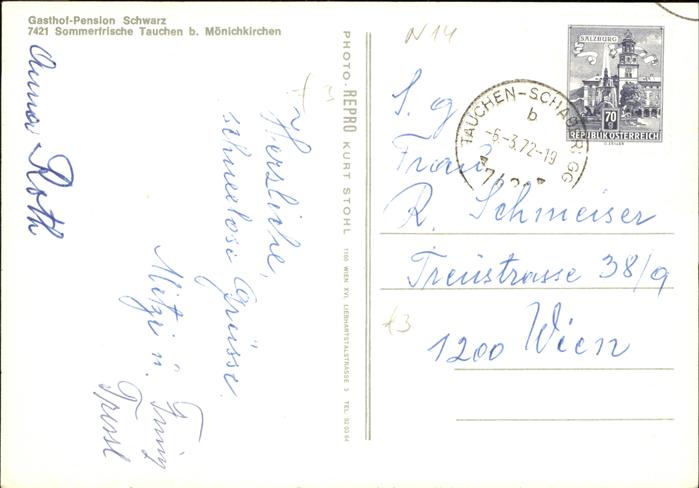 Gasthof-Pension Schwarz
7421 Sommerfrische Tauchen b. Mönichkirchen
Herzliche,
schneelose Grüsse
Mitzi u.
Tressl
Anna Roth
PHOTO-REPRO KURT STOHL 1160 WIEN XVI, LIEBHARTSTALSTRASSE 5 TEL. 92 03 64
N 14
SALZBURG
70
REPUBLIK ÖSTERREICH
TAUCHEN-SCHAUEREGG
b
-6.-3.72-19
S. g
Frau
R. Schmeiser
Treustrasse 38/9
1200 Wien